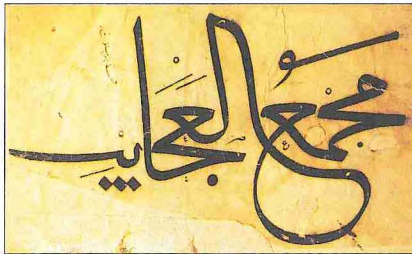 مجمع العجايب